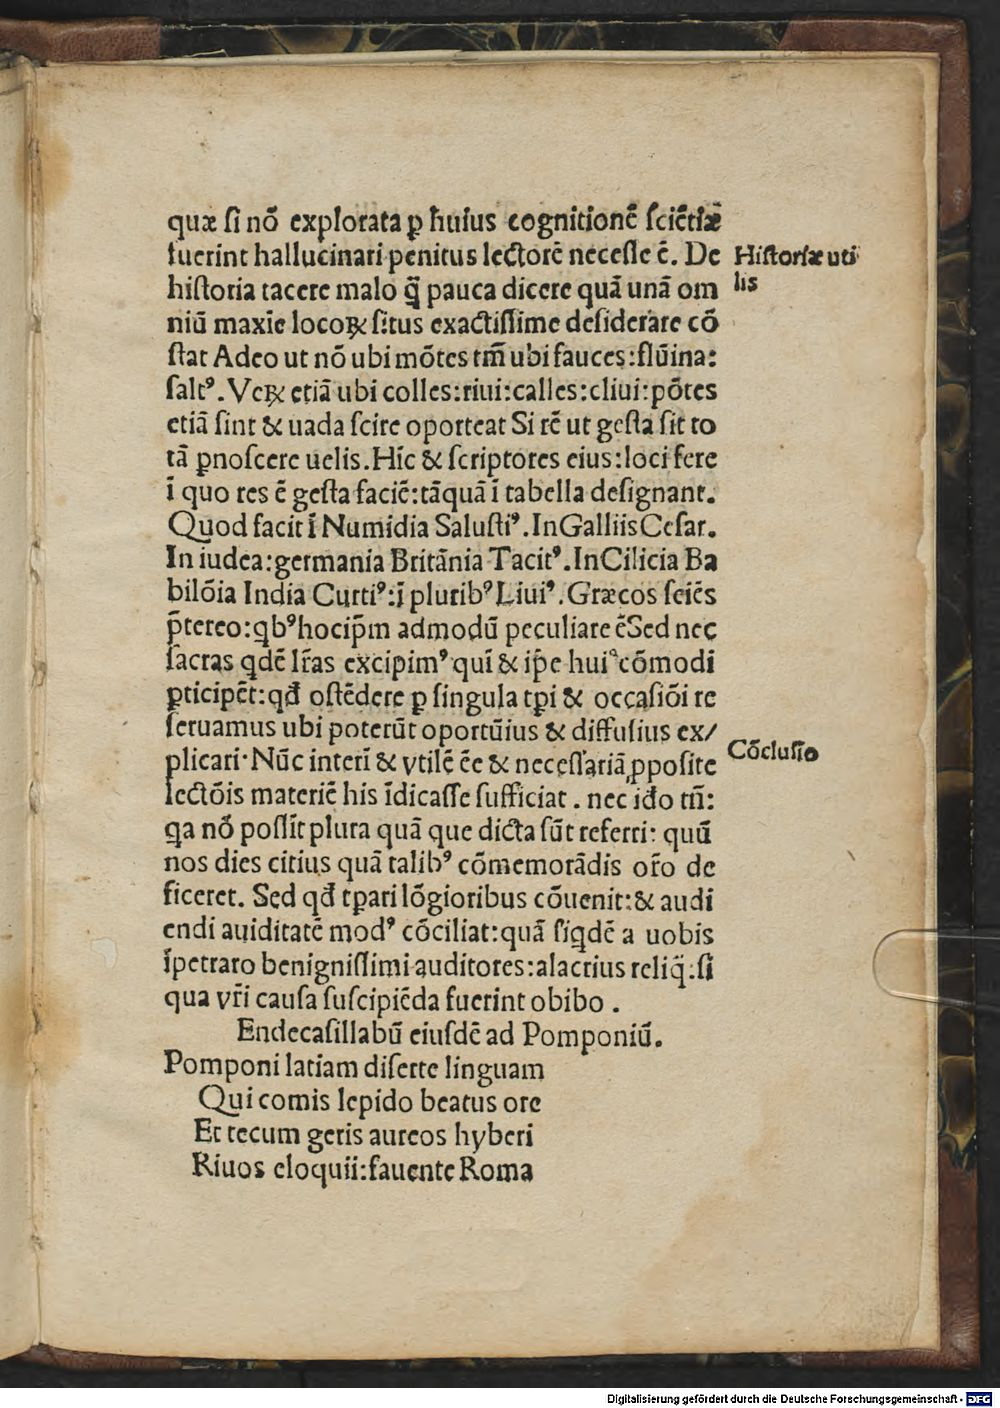 quæ ſi nõ explorata ꝑ hͫuius cognitionẽ ſciẽtiæ
fuerint hallucinari penitus lectorẽ neceſſe ẽ. De
hiſtoria tacere malo q̃̃ pauca dicere quã unã om
niũ maxĩe locoꝝ ſitus exactiſſime deſiderare cõ
ſtat Adeo ut nõ ubi mõtes tm̃ ubi fauces:flũina:
ſaltꝰ. Veꝝ etiã ubi colles:riui:calles:cliui:põtes
etiã ſint & uada ſcire oporteat Si rẽ ut geſta ſit to
tã ꝑnoſcere uelis. Hĩc & ſcriptores eius:loci fere
ĩ quo res ẽ geſta faciẽ:tãquã ĩ tabella deſignant.
Quod facit ĩ Numidia Saluſtiꝰ. In Galliis Ceſar.
In iudea:germania Britãnia Tacitꝰ. In Cilicia Ba
bilõia India Curtiꝰ:ĩ pluribꝰ Liuiꝰ. Græcos ſciẽs
p̃tereo:qbꝰ hocip̃m admodũ peculiare ẽ Sed nec
ſacras qdẽ lr̃as excipimꝰ quĩ & ip̃e huiꝰ cõmodi
ꝑticipẽt:qđ oſtẽdere ꝑ ſingula tꝑi & occaſiõi re
ſeruamus ubi poterũt oportũius & diffuſius ex/
plicari· Nũc interĩ & vtilẽ ẽe & neceſſariã ꝓpoſite
lectõis materiẽ his ĩdicaſſe ſufficiat . nec iđo tñ:
qa nõ poſſit plura quã que dicta ſũt referri: quũ
nos dies citius quã talibꝰ cõmemorãdis or̃o de
ficeret. Sed qđ tꝑari lõgioribus cõuenit:& audi
endi auiditatẽ modꝰ cõciliat:quã ſiqdẽ a uobis
ĩpetraro benigniſſimi auditores:alacrius reliq̃:ſi
qua vr̃i cauſa ſuſcipiẽda fuerint obibo .
Endecaſillabũ eiuſdẽ ad Pomponiũ.
Pomponi latiam diſerte linguam
Qui comis lepido beatus ore
Et tecum geris aureos hyberi
Riuos eloquii:fauente Roma
Hiſtoriæ uti
lis
Cõcluſio
Digitalisierung gefördert durch die Deutsche Forschungsgemeinschaft - DFG